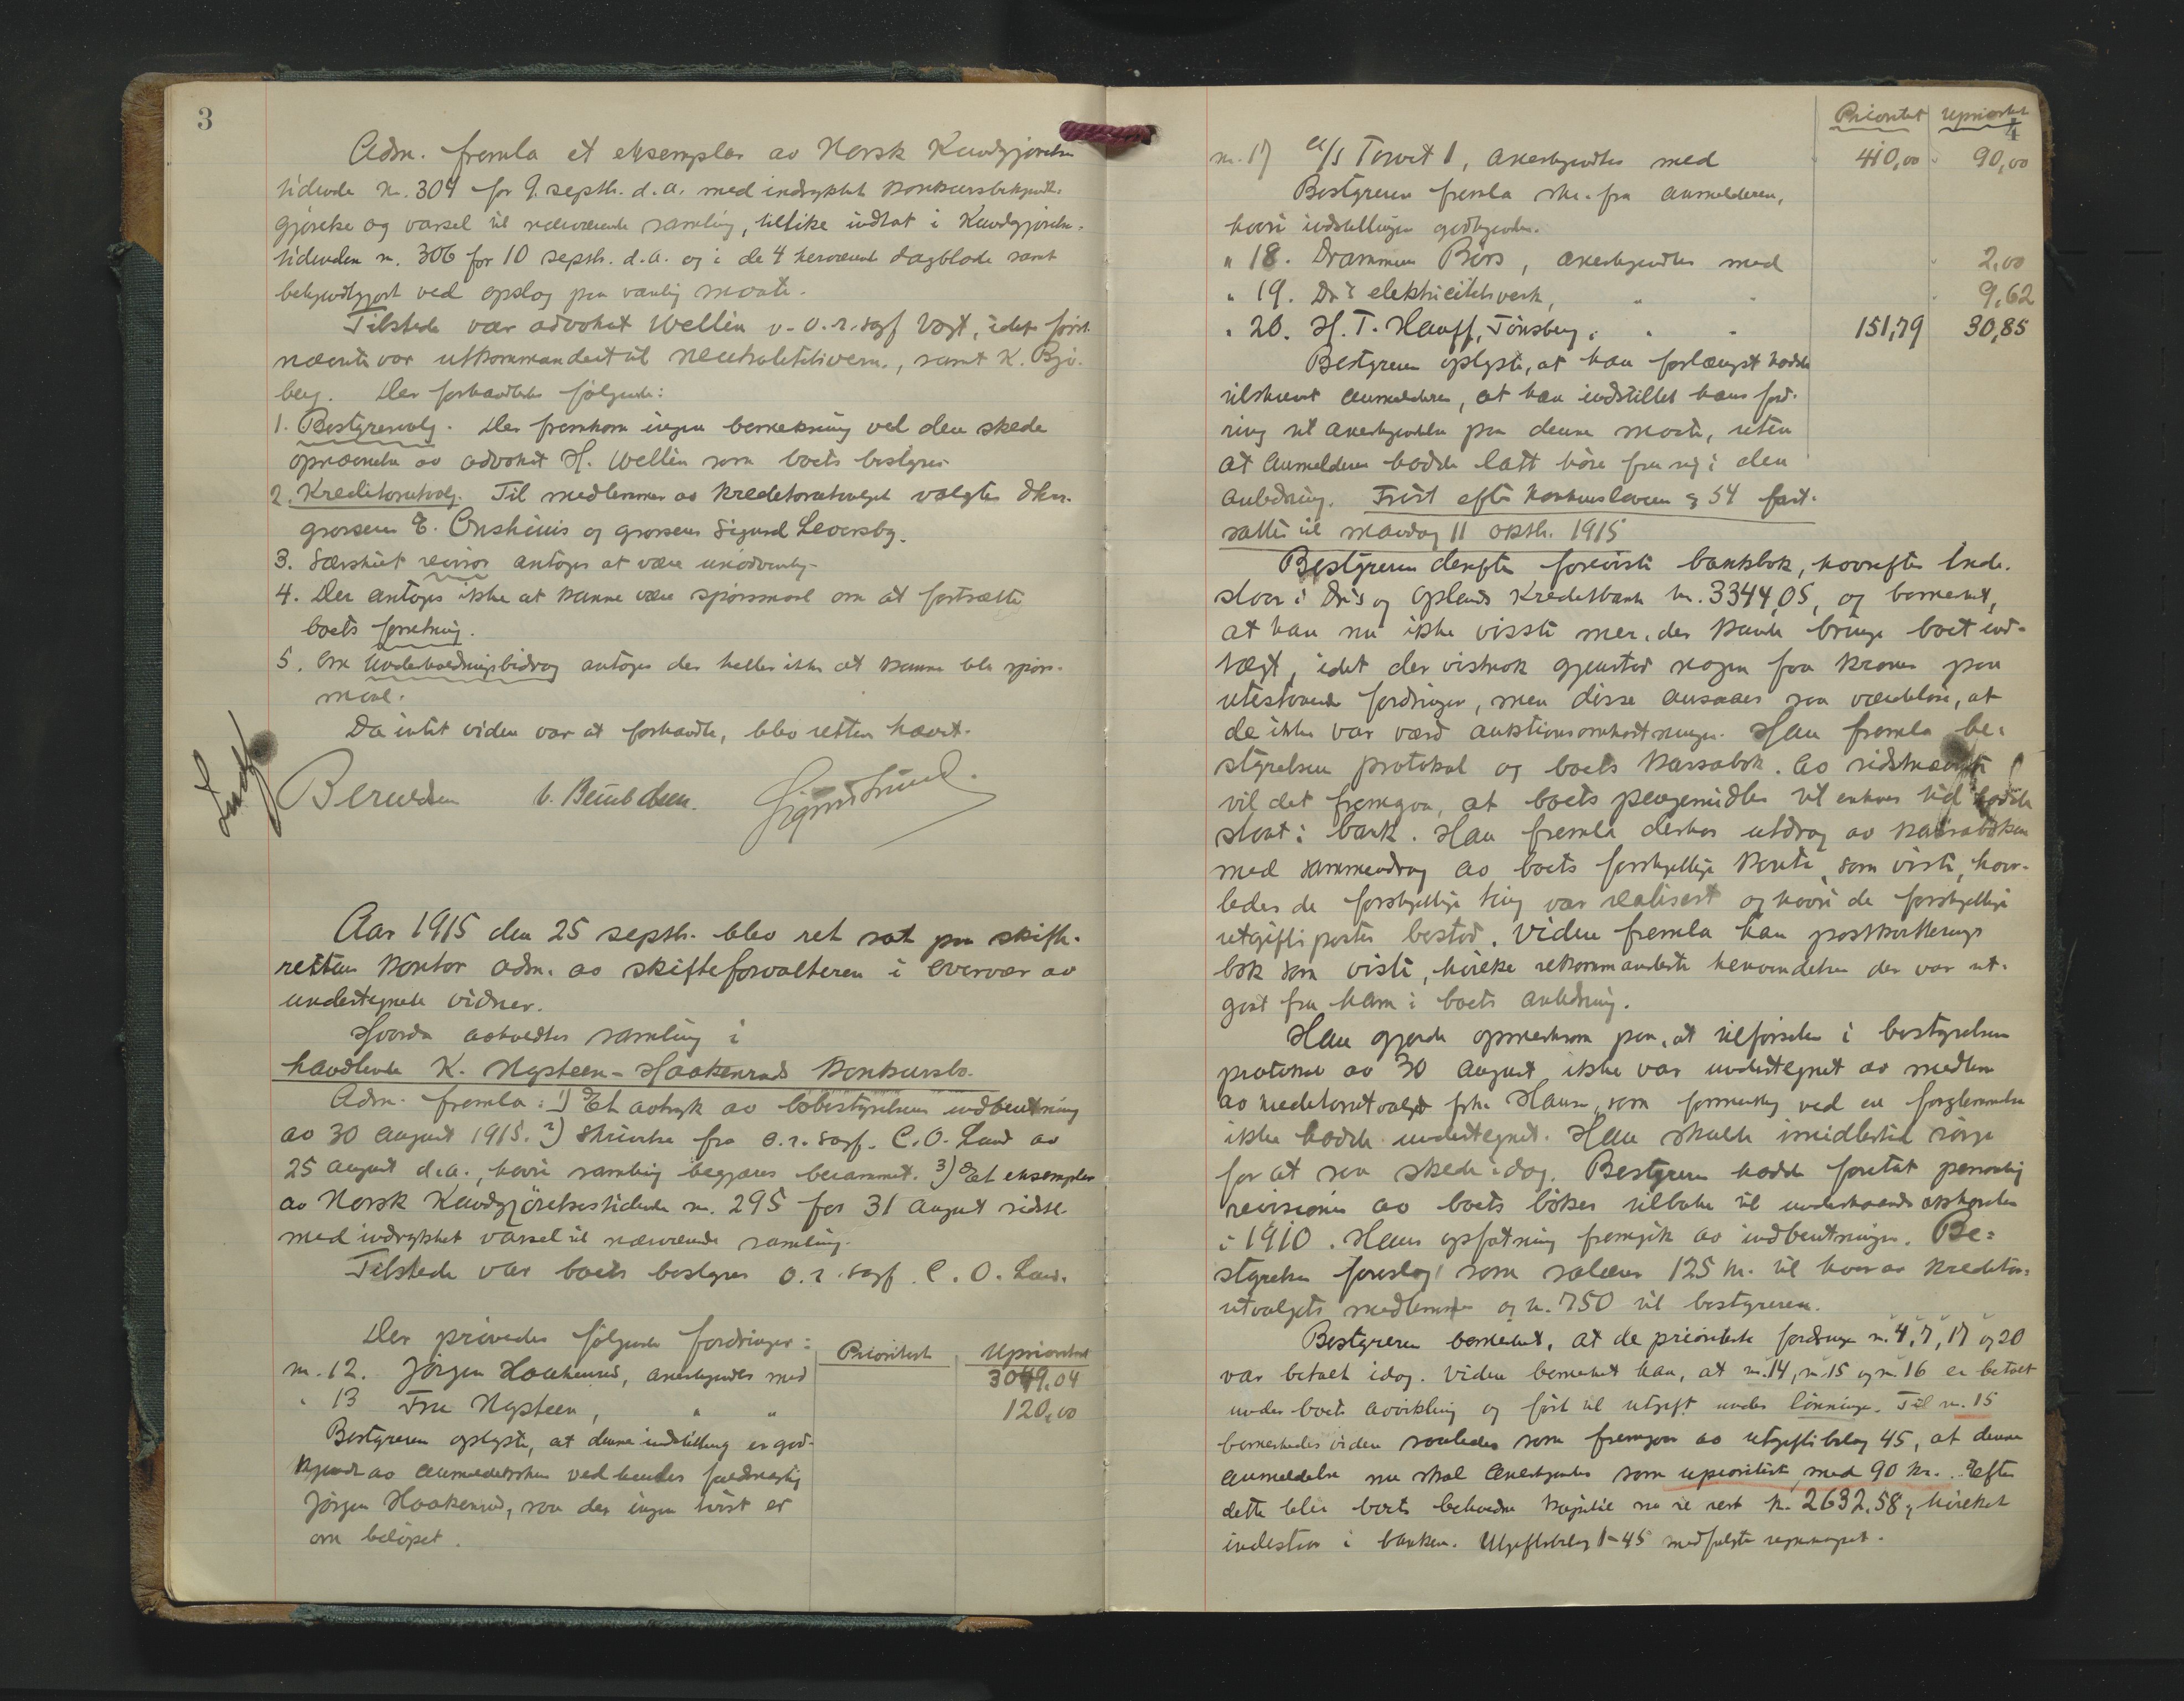 3
Adm. fremla et eksemplar av Norsk Kundgjørelses
tidende nr. 304 for 9. septbr. d.a. med indrykket konkursbekjendt-
gjørelse og varsel til nærværende samling, tillike indtat i Kundgjørelses-
tidenden nr. 306 for 10 septbr. d.a. og i de 4 herværende dagblade samt
bekjendtgjort ved opslag paa vanlig maate.
Tilstede var advokat Wellén v. o.r.sagf Vogt, idet først-
nævnte var utkommandert til neutralitetsvern, samt K. Bjo-
berg. Der forhandledes følgende:
1. Bestyrervalg. Der fremkom ingen bemerkning ved den skede
opnævnelse av advokat H. Wellén som boets bestyrer
2. Kreditorutvalg. Til medlemmer av kreditorutvalget valgtes dhrr.
grosserer E. Onshuus og grosserer Sigurd Leversby.
3. Særskilt revisor antoges at være unødvendig
4. Der antoges ikke at kunne være spørsmaal om at fortsætte
boets forretning.
5. Om Underholdningsbidrag antoges der heller ikke at kunne bli spørs-
maal.
Da intet videre var at forhandle, blev retten hævet.
Berntsen v. Berntsen. Sigurd Lund.
Aar 1915 den 25 septbr. blev ret sat paa skifte-
rettens kontor adm. av skifteforvalteren i overvær av
undertegnede vidner.
Hvorda avholdtes samling i
handlende K. Nysteen-Haakenruds konkursbo.
Adm. fremla: 1) Et avtryk av bobestyrelsens indberetning
av 30 august 1915. 2) Skrivelse fra o.r.sagf. C. O. Lund av
25 august d.a., hvori samling begjæres berammet. 3) Et eksemplar
av Norsk Kundgjørelsestidende nr. 295 for 31 august sidstl.
med indrykket varsel til nærværende samling.
Tilstede var boets bestyrer o.r.sagf. C. O. Lund.
Der prøvedes følgende fordringer: Prioritert Uprioritert
nr. 12. Jørgen Haakenrud, anerkjendes med 3049.04
" 13 Fru Nysteen, " " 120,00
Bestyreren oplyste, at denne indstilling er god-
kjendt av anmeldelsen ved hendes fuldmægtig
Jørgen Haakenrud, saa der ingen tvist er
om beløpet.
Prioritet Uprioritet
4
nr. 17 A/S Torvet 1, anerkjendtes med 410,00 90,00
Bestyreren fremla skr. fra anmelderen,
hvori indstillingen godkjendes.
" 18. Drammens Børs, anerkjendtes med 2,00
" 19. Dr's elektricitetsverk, " " 9,62
" 20. H. T. Hauff, Tønsberg, " " 151,79 30,85
Bestyreren oplyste, at han forlængst hadde
tilskrevet anmelderen, at han indstillet hans ford-
ring til anerkjendelse paa denne maate, uten
at anmelderen hadde latt høre fra sig i den
anledning. Frist efter konkursloven § 54 fast-
sattes til mandag 11 oktbr. 1915
Bestyreren derefter foreviste bankbok, hvorefter inde-
staar i Dr's og Oplands Kreditbank kr. 3344,05, og bemerket,
at han nu ikke visste mer, der kunde bringe boet ind-
tægt, idet der vistnok gjenstod nogen faa kroner paa
utestaaende fordringer, men disse ansaaes saa værdiløse, at
de ikke var værd auktionsomkostninger. Han fremla be-
styrelsens protokol og boets kassabok. Av sidstnævnte
vil det fremgaa, at boets pengemidler til enhver tid hadde
staat i bank. Han fremla derhos utdrag av kassaboken
med sammendrag av boets forskjellige konti, som viste, hvor-
ledes de forskjellige ting var realisert og hvori de forskjellige
utgiftsposter bestod. Videre fremla han postkvitterings
bok som viste, hvilke rekommanderte henvendelser der var ut-
gaat fra ham i boets anledning.
Han gjorde opmerksom paa, at tilførselen i bestyrelsens
protokol av 30 august ikke var undertegnet av medlem
av kreditorutvalget frk. Hansen, som formentlig ved en forglemmelse
ikke hadde undertegnet. Han skulde imidlertid sørge
for at saa skede idag. Bestyreren hadde foretat personlig
revisionen av boets bøker tilbake til underhaandsakkorden
i 1910. Hans opfatning fremgik av indberetningen. Be-
styrelsen foreslog som salærer 125 kr. til hver av kreditor-
utvalgets medlemmer og kr. 750 til bestyreren.
Bestyreren bemerket, at de prioriterte fordringer nr. 4, 7, 17 og 20
var betalt idag. Videre bemerket han, at nr. 14, nr. 15 og nr. 16 er betalt
under boets avvikling og ført til utgift under lønninger. Til nr. 15
bemerkedes videre saaledes som fremgaar av utgiftsbilag 45, at denne
anmeldelse nu skal anerkjendes som uprioritert med 90 kr. Efter
dette blir boets beholdne kapital nu til rest kr. 2632,58, hvilket
indestaar i banken. Utgiftsbilag 1-45 medfulgte regnskapet.